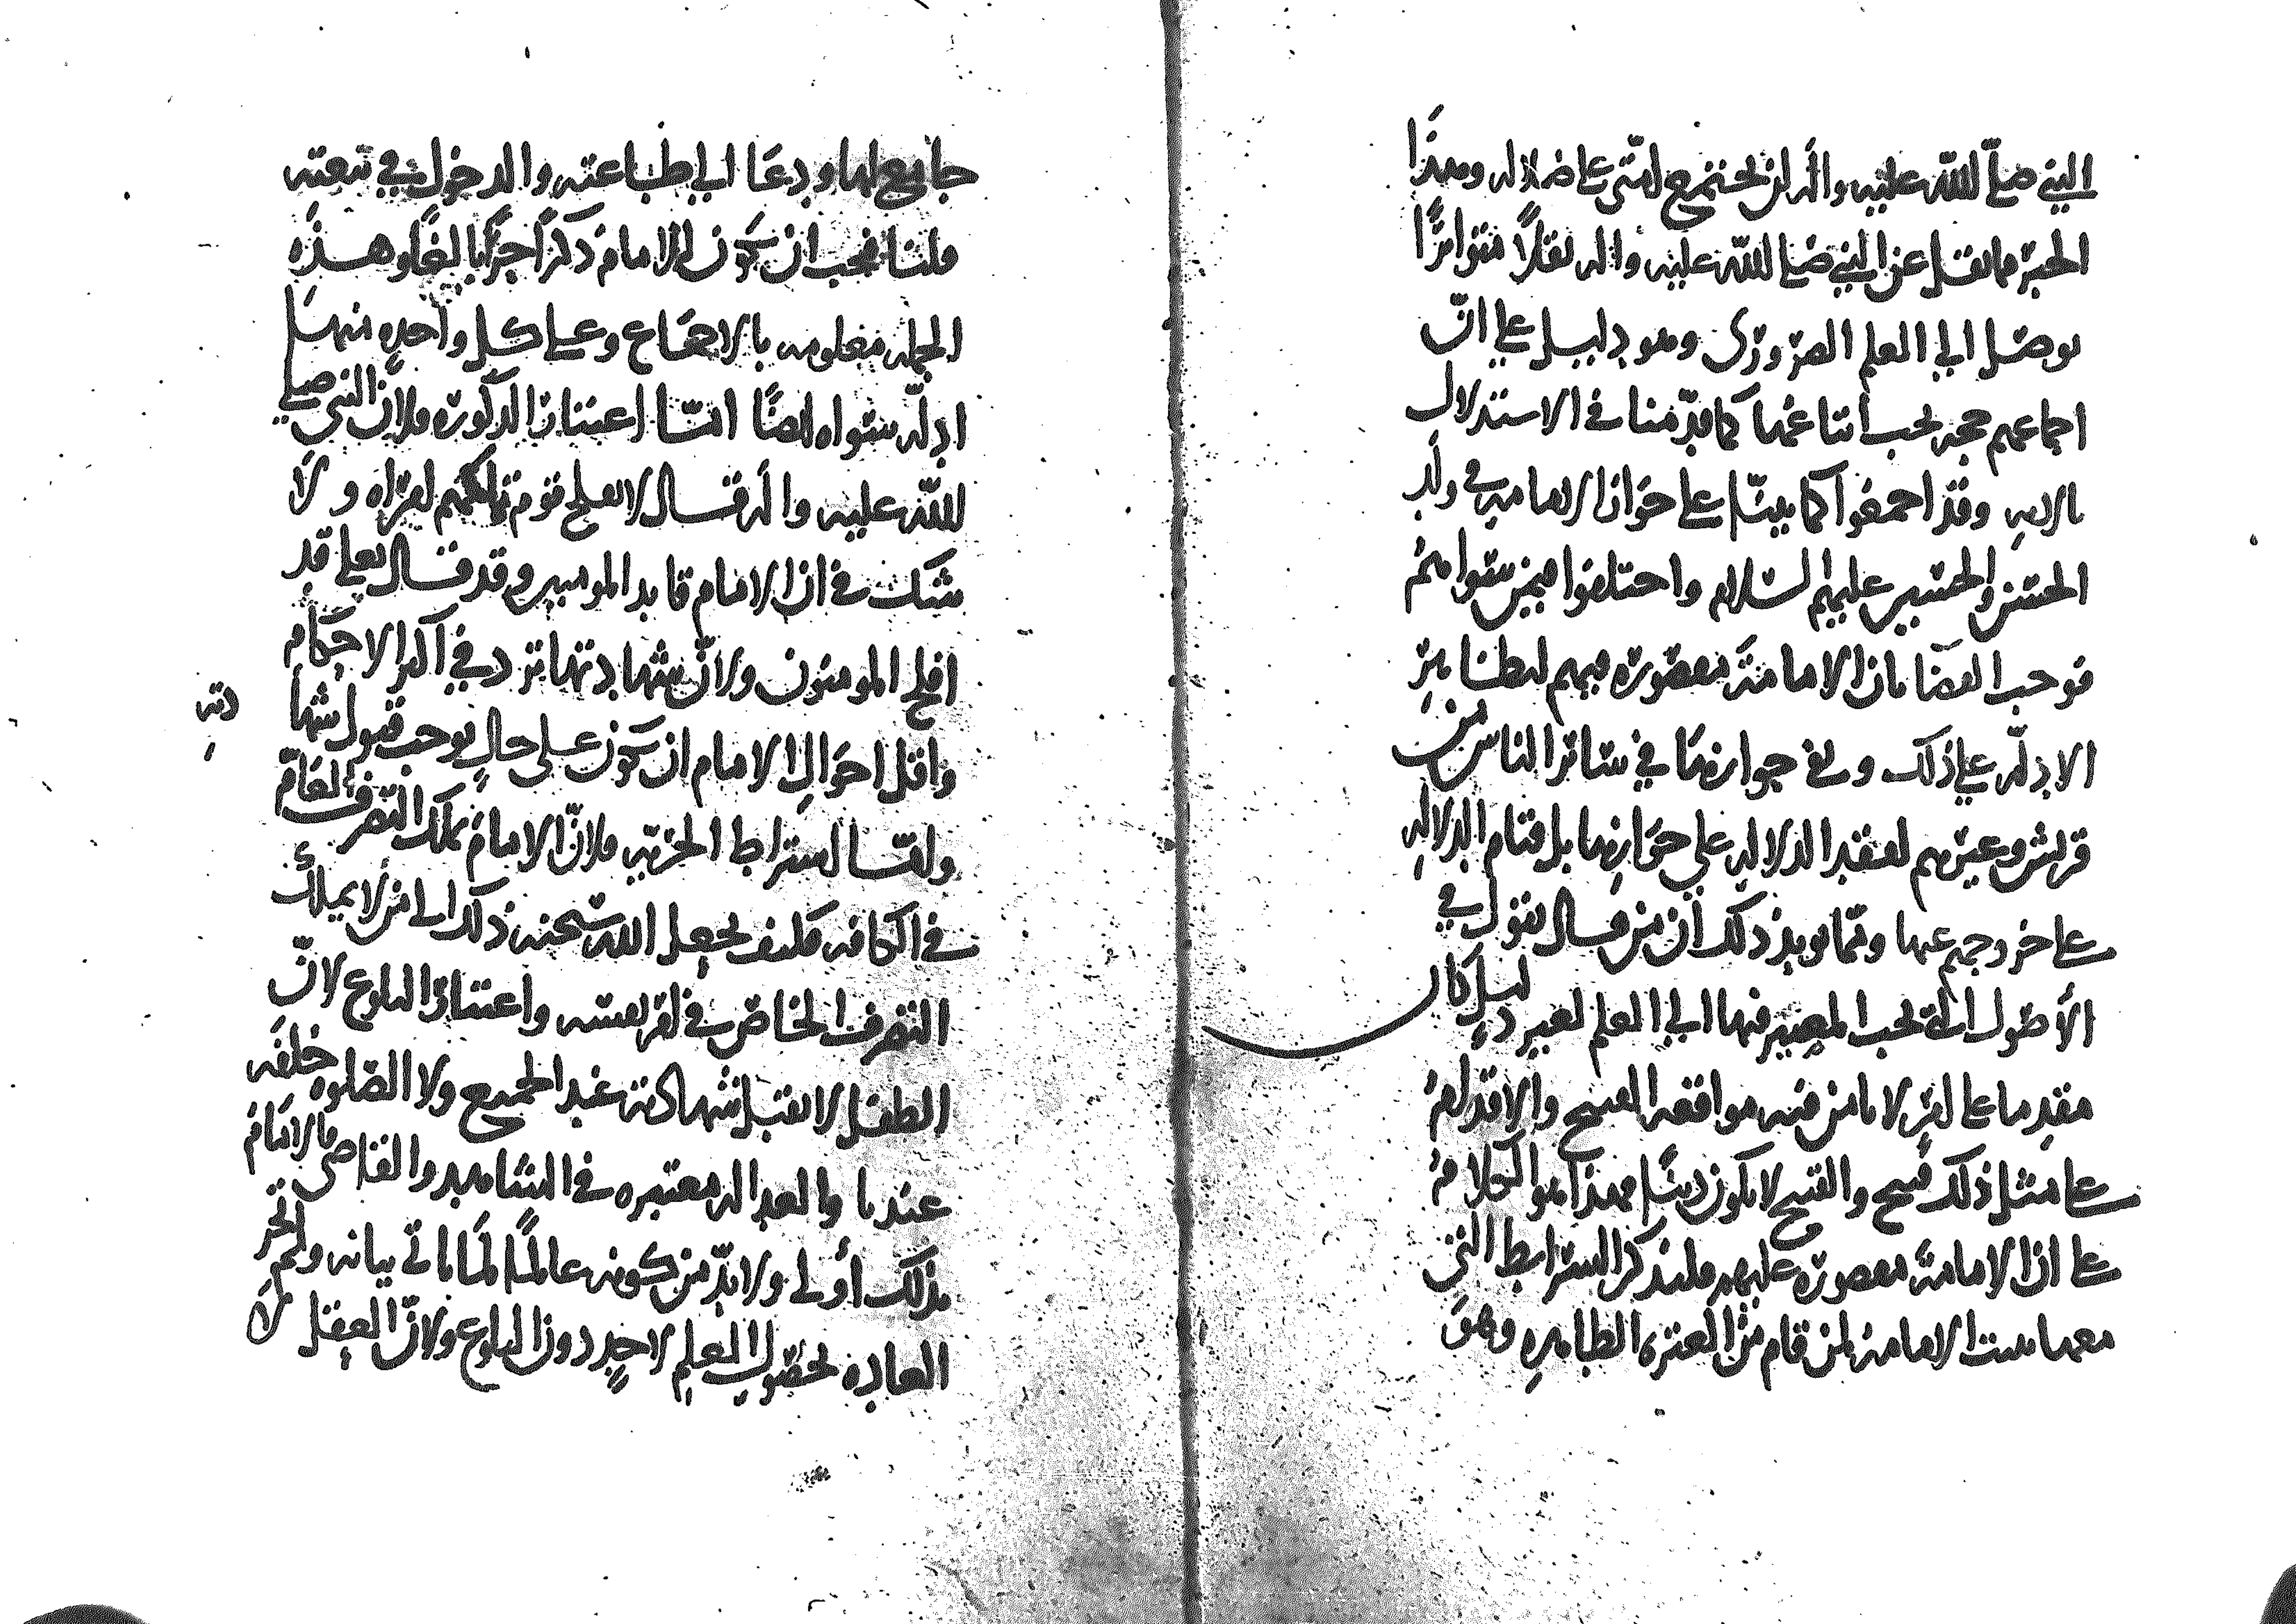 النبي صلى الله عليه وآله لن تجتمع أمتي على ضلاله وهذا
الخبر مما نقل عن النبي صلى الله عليه وآله نقلاً متواترًا
يوصل إلى العلم الضروري وهو دليل على أنّ
اجماعهم حجه يجب اتباعها كما قدّمنا في الاستدلال
بالايه وقد اجمعوا كما بينّا على جواز الامامه في ولد
الحسن والحسين عليهم السلام واختلفوا فيمن سواهم
فوجب القضا بان الامامة مقصوره فيهم لتطابق
الادلّه على ذلك ولم جوازها في سائر الناس من
قريش وغيرهم لفقد الدلاله على جوازها بل قيام الدلاله
على خروجهم عنها ومما يويد ذلك أن من قال بقول في
الأصول التي يجب المصير فيها إلى العلم لغير دليل كان
مقدما على لا يامن فيه مواقعه القبيح والاقدام
على مثل ذلك قبيح والقبيح لا يكون دينًا فهذا هو الكلام
على ان الامامة مقصوره عليهم فلنذكر الشرايط التي
معها تثبت الامامه لمن قام من العتره الطاهره وهو
جامع لها ودعا إلى طاعته والدخول في بيعته
قلنا يجب ان يكون الامام ذكرًا حرًا بالغًا وهذه
الجمله معلومه بالاجماع وعلى كل واحده منها
ادلّه سواه ايضًا امّا اعتبار الذكوره فلأن النبي صلى
الله عليه وآله قال لا يفلح قوم تملكهم امراه ولا
شك في ان الامام قايد المومنين وقد قال تعلى قد
افلح المومنون ولأنّ شهادتها ترد في أكثر الاحكام
واقل احوال الامام ان يكون على حالٍ يوجب قبول شها
دته
وامّا اشتراط الحريّه فلانّ الامام يملك التصرف العام
في الكافه فكيف يجعل الله سبحنه ذلك الى من لا يملك
التصرف الخاص في نفسه واعتبار البلوغ لانّ
الطفل لا تقبل شهادته عند الجميع ولا الصلوه خلفه
عندنا والعداله معتبره في الشاهد والقاضي فالامام
بذلك أولى ولا بدّ من كونه عالمًا لما ياتي بيانه ولم تجر
العاده بحصول العلم لاحدٍ دون البلوغ ولانّ العقل لا